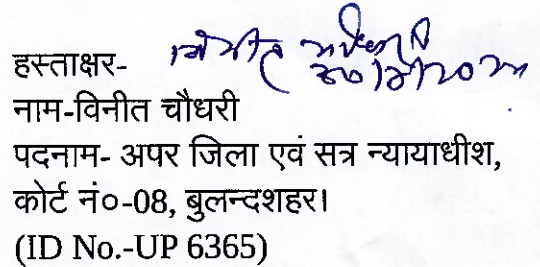 हस्ताक्षर-
नाम-विनीत चौधरी
पदनाम- अपर जिला एवं सत्र न्यायाधीश,
कोर्ट नं०-08, बुलन्दशहर।
(ID No.-UP 6365)